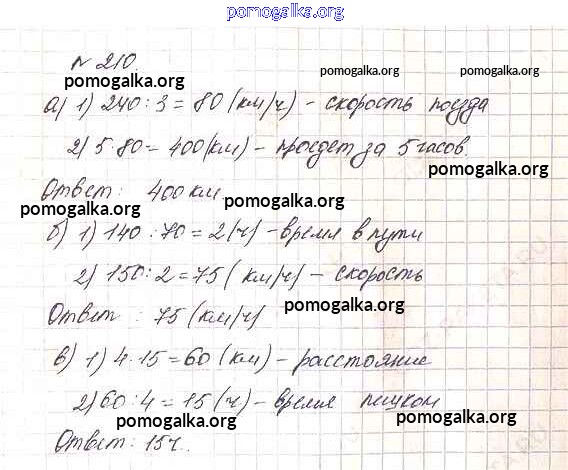 pomogalka.org
№ 210.
pomogalka.org pomogalka.org pomogalka.org
а) 1) 240 : 3 = 80 (км/ч) - скорость поезда
2) 5·80 = 400 (км) - проедет за 5 часов.
pomogalka.org
Ответ: 400 км.
pomogalka.org pomogalka.org
б) 1) 140 : 70 = 2 (ч) - время в пути
2) 150 : 2 = 75 (км/ч) - скорость
pomogalka.org
Ответ: 75 (км/ч)
в) 1) 4·15 = 60 (км) - расстояние
2) 60 : 4 = 15 (ч) - время пешком
pomogalka.org pomogalka.org
Ответ: 15 ч.